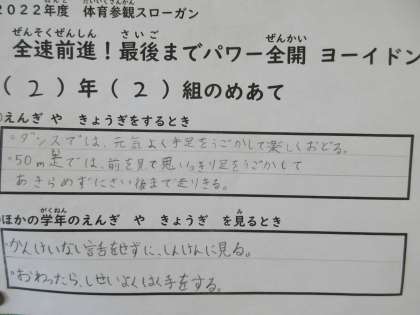 2022年度 体育参観スローガン
全速前進！最後までパワー全開 ヨーイドン
（２）年（２）組のめあて
えんぎ や きょうぎをするとき
・ダンスでは、元気よく手足をうごかして楽しくおどる。
・50m走では、前を見て思いっきり足をうごかして
あきらめずにさい後まで走りきる。
ほかの学年のえんぎ や きょうぎ を見るとき
・かんけいない言舌をせずに、しんけんに見る。
・おわったら、しせいよくはく手をする。